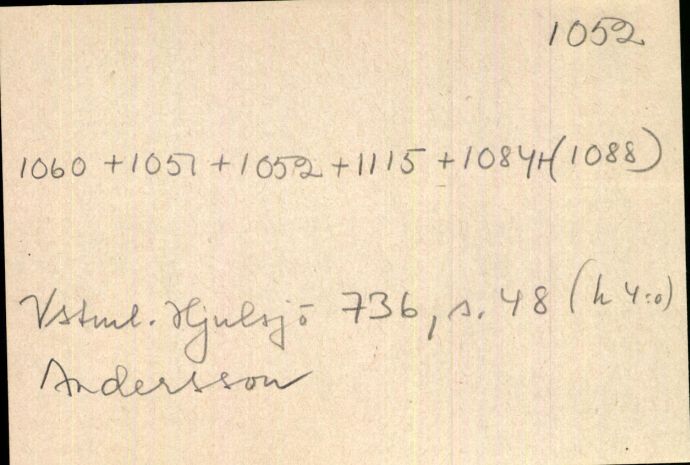 1052
1060 + 1051 + 1052 + 1115 + 1084 + (1088)
Vstml. Hjulsjö 736, s. 48 (h 4:o)
Andersson